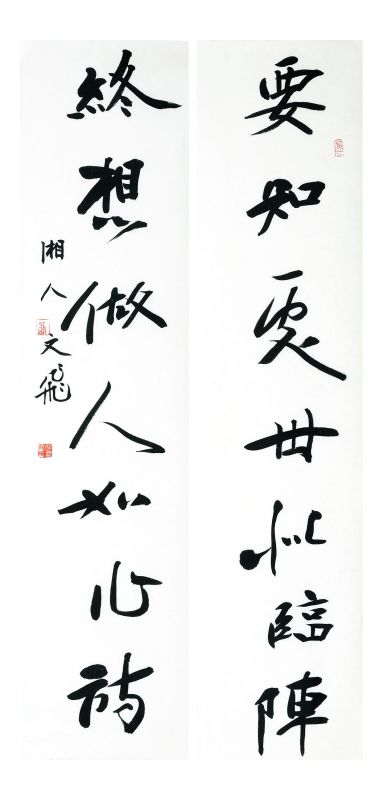 要知處世似臨陣
終想做人如作詩
湘人文飛